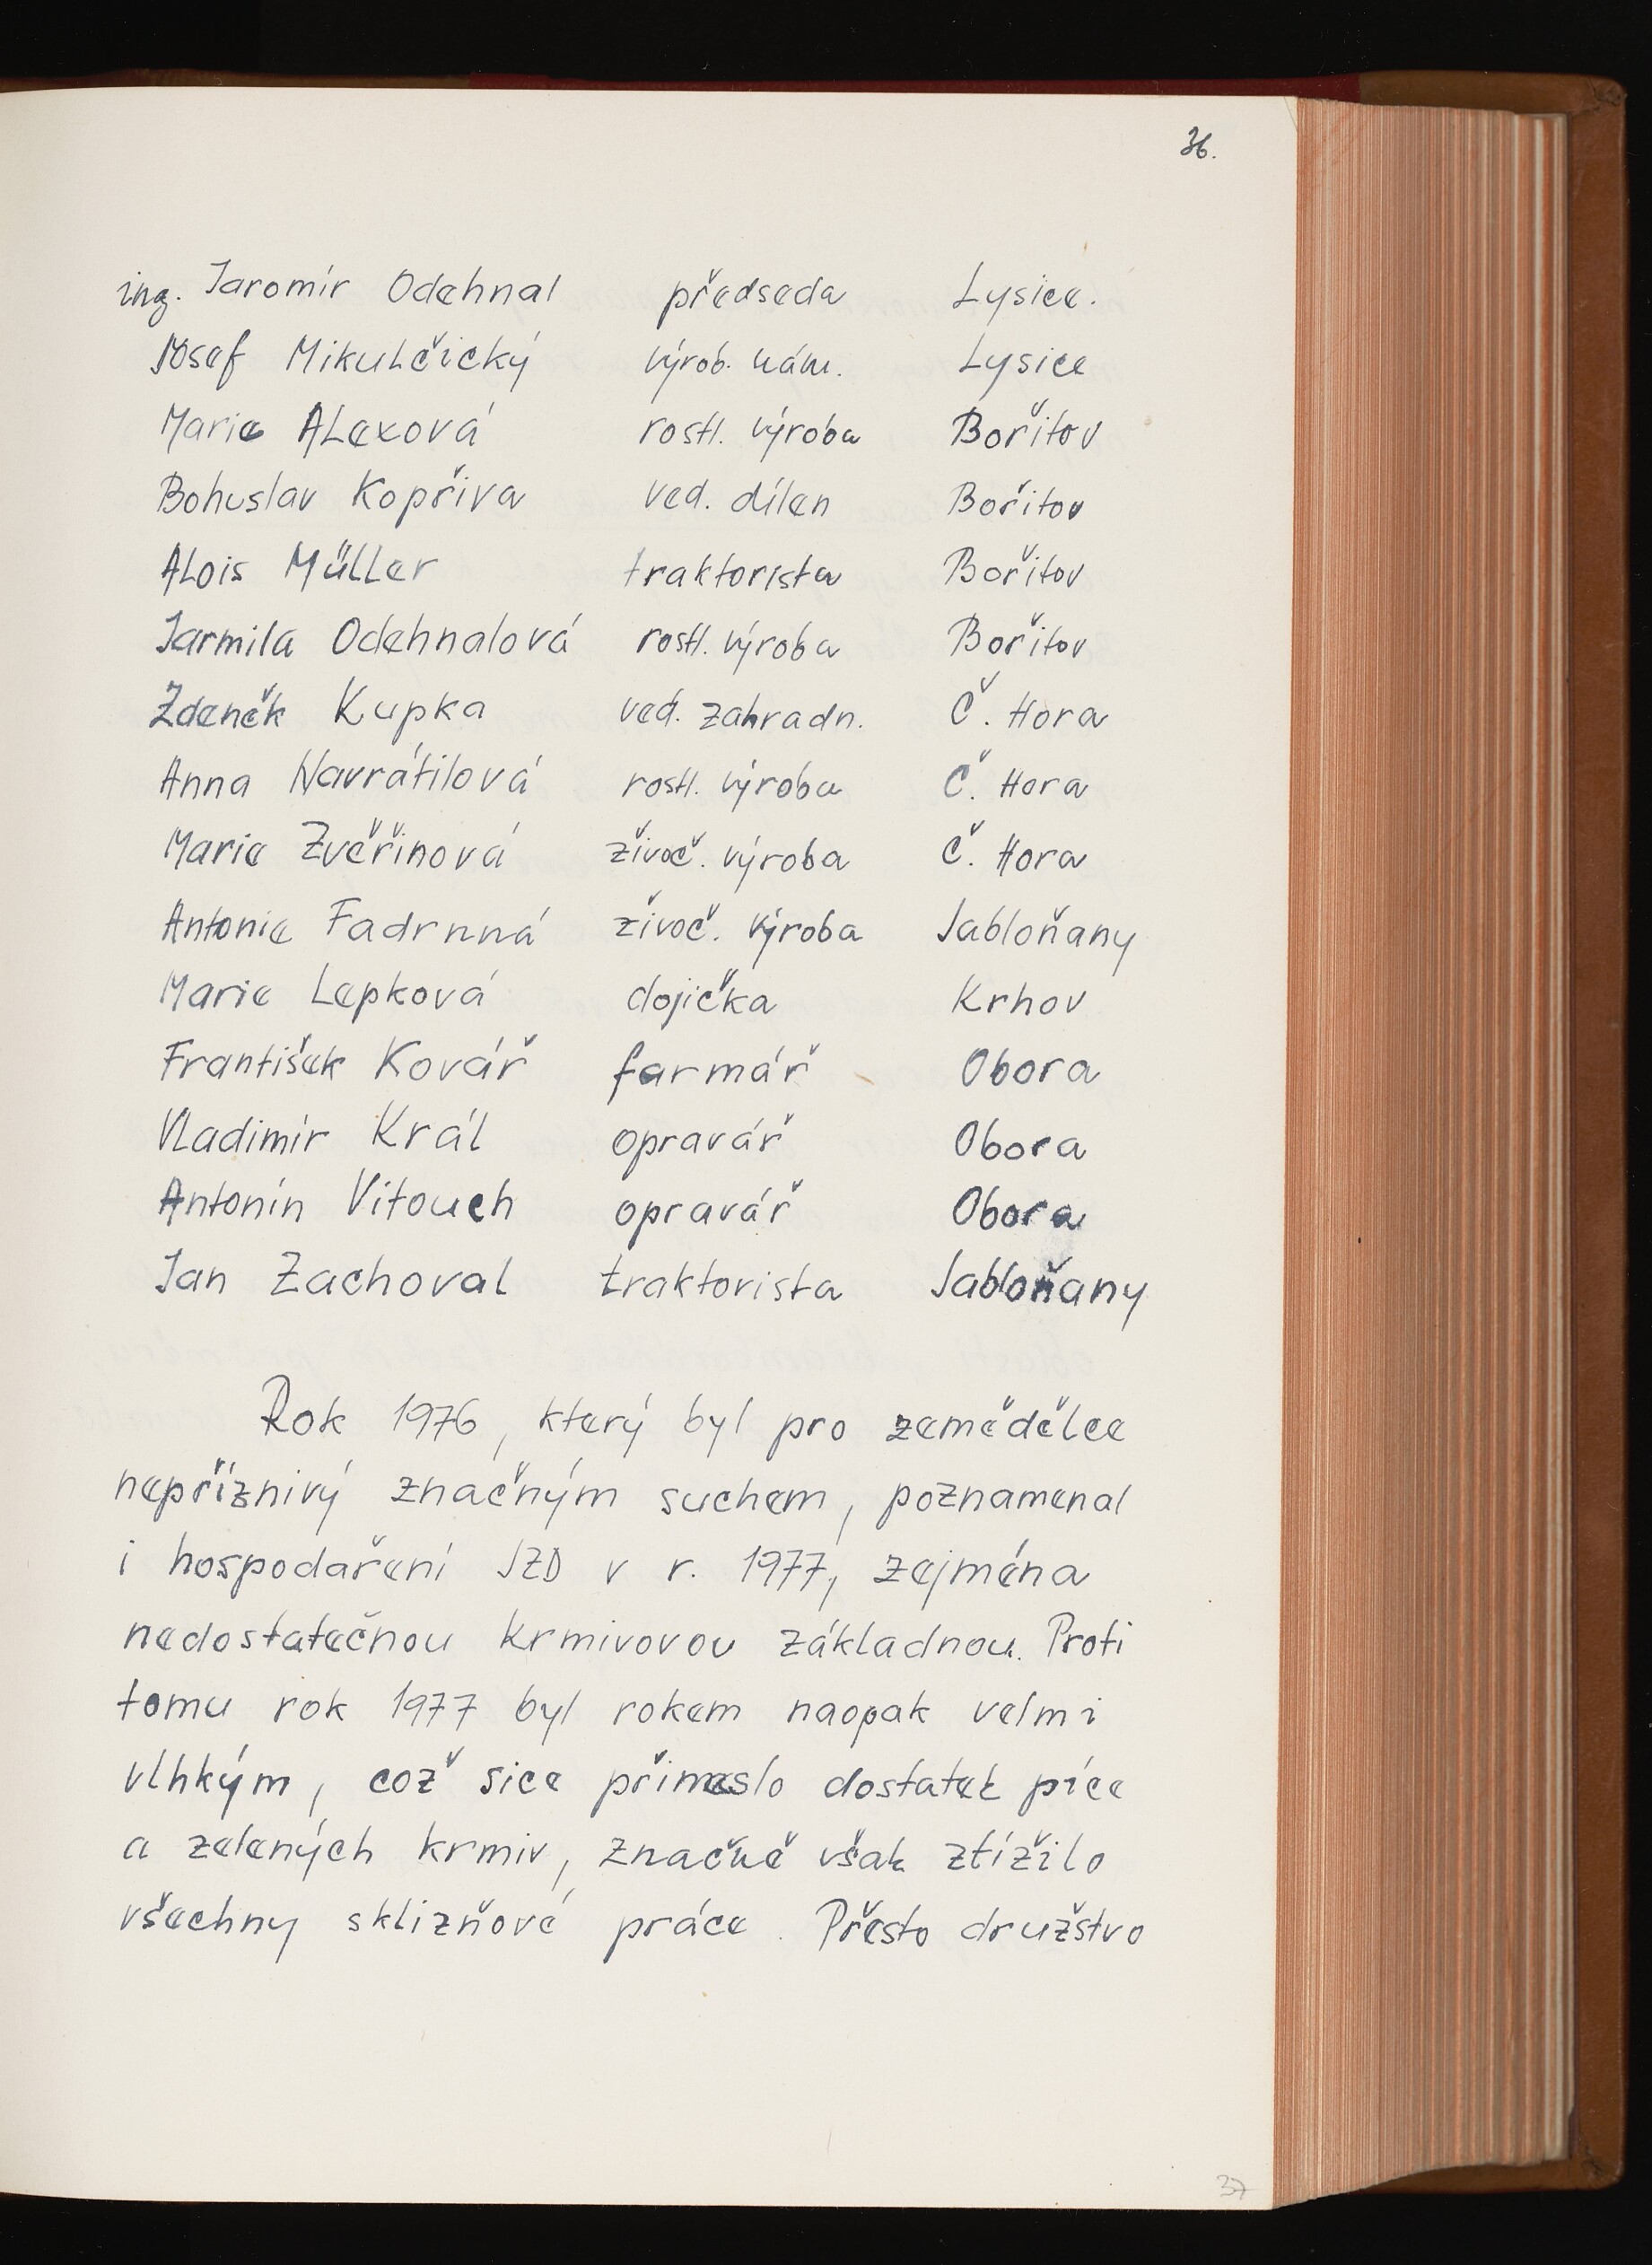 36.
ing. Jaromír Odehnal předseda Lysice.
Josef Mikulčický výrob. nám. Lysice
Marie Alexová rostl. výroba Bořitov
Bohuslav Kopřiva ved. dílen Bořitov
Alois Müller traktorista Bořitov
Jarmila Odehnalová rostl. výroba Bořitov
Zdeněk Kupka ved. zahradn. Č. Hora
Anna Navrátilová rostl. výroba Č. Hora
Marie Zvěřinová živoč. výroba Č. Hora
Antonie Fadrnná živoč. výroba Jabloňany
Marie Lepková dojička Krhov
František Kovář farmář Obora
Vladimír Král opravář Obora
Antonín Vitouch opravář Obora
Jan Zachoval traktorista Jabloňany
Rok 1976, který byl pro zemědělce
nepříznivý značným suchem, poznamenal
i hospodaření JZD v r. 1977, zejména
nedostatečnou krmivovou základnou. Proti
tomu rok 1977 byl rokem naopak velmi
vlhkým, což sice přineslo dostatek píce
a zelených krmiv, značně však ztížilo
všechny sklizňové práce. Přesto družstvo
37